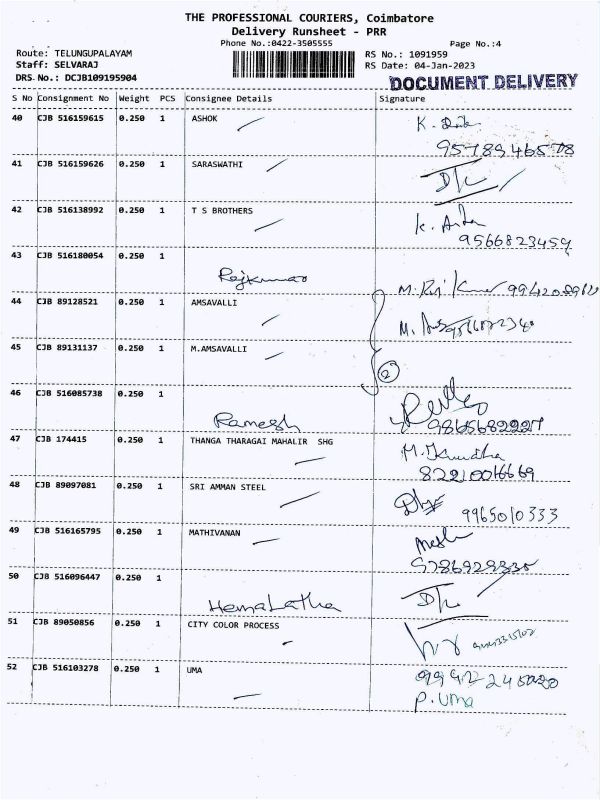 THE PROFESSIONAL COURIERS, Coimbatore
Delivery Runsheet - PRR
Phone No.:0422-3505555
Page No.:4
Route: TELUNGUPALAYAM
RS No.: 1091959
Staff: SELVARAJ
RS Date: 04-Jan-2023
DRS No.: DCJB109195904
DOCUMENT DELIVERY
S No Consignment No Weight PCS Consignee Details Signature
40 CJB 516159615 0.250 1 ASHOK K.
9578946578
41 CJB 516159626 0.250 1 SARASWATHI
42 CJB 516138992 0.250 1 T S BROTHERS K.
9566823459
43 CJB 516180054 0.250 1
Rajkumar M. Raj Kumar
44 CJB 89128521 0.250 1 AMSAVALLI M.
45 CJB 89131137 0.250 1 M.AMSAVALLI
2
46 CJB 516085738 0.250 1
Ramesh
47 CJB 174415 0.250 1 THANGA THARAGAI MAHALIR SHG M.
48 CJB 89097081 0.250 1 SRI AMMAN STEEL
9965010333
49 CJB 516165795 0.250 1 MATHIVANAN
50 CJB 516096447 0.250 1
HemaLatha
51 CJB 89050856 0.250 1 CITY COLOR PROCESS
52 CJB 516103278 0.250 1 UMA
P. Uma